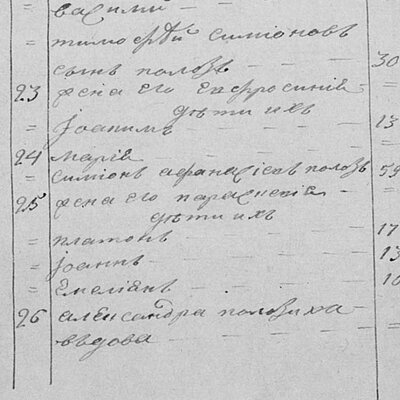 = василий —
= тимофей симионовъ
сынъ полозъ — — 30
23 жена его евфросинія —
дѣти ихъ
= Іоакимъ — — — 13
24 марія — — —
= симіонъ афанасіевъ полозъ 59
25 жена его параскевія —
дѣти ихъ
= платонъ — — — 17
= Іоаннъ — — — 13
= Емеліанъ — — — 10
26 александра полозиха —
вѣдова — — —